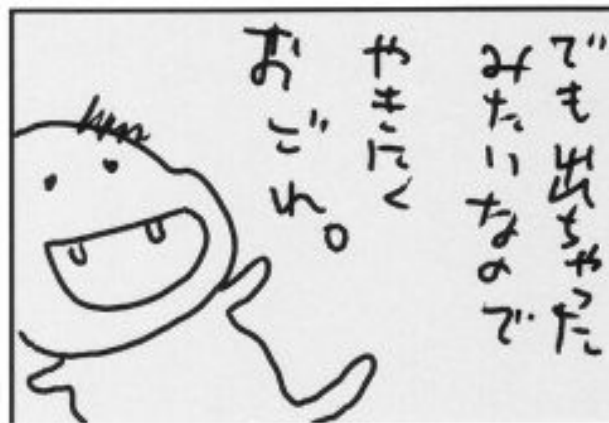 でも出ちゃった
みたいなので
やきにく
おごれ。